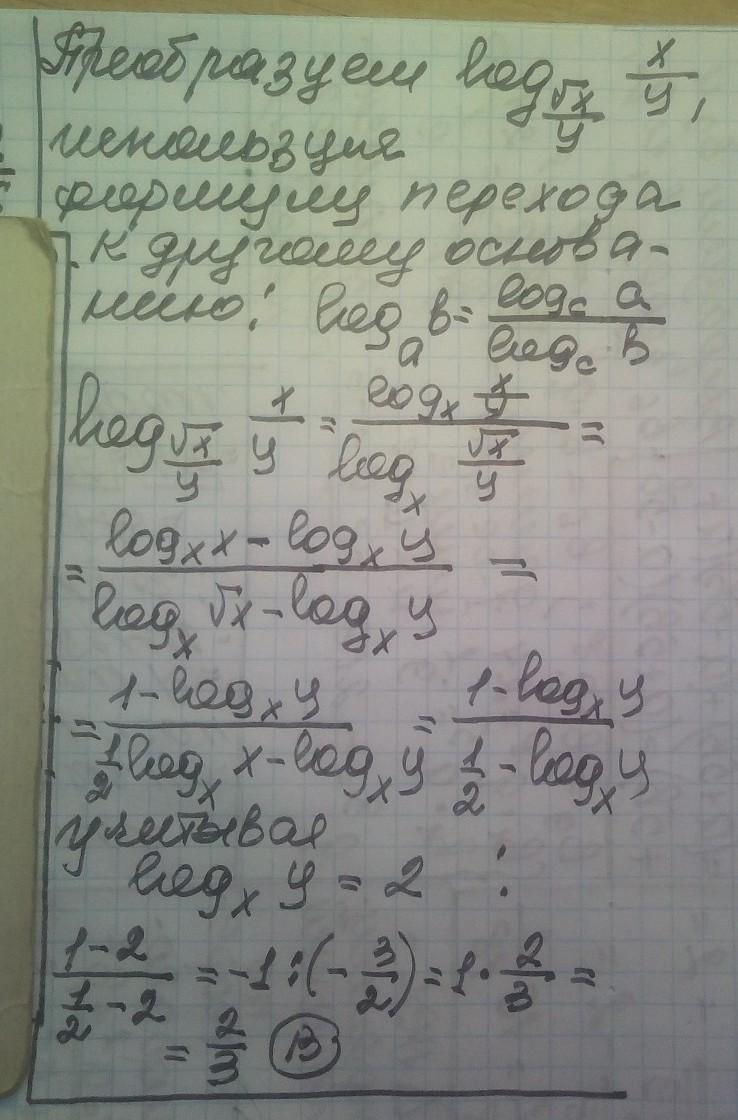 Преобразуем log_{√x/y} x/y,
используя
формулу перехода
к другому основа-
нию: log_a b = log_c a / log_c b
log_{√x/y} x/y = (log_x x/y) / (log_x √x/y) =
= (log_x x - log_x y) / (log_x √x - log_x y) =
= (1 - log_x y) / (1/2 log_x x - log_x y) = (1 - log_x y) / (1/2 - log_x y)
учитывая
log_x y = 2 :
(1-2) / (1/2 - 2) = -1 : (-3/2) = 1 · 2/3 =
= 2/3 В